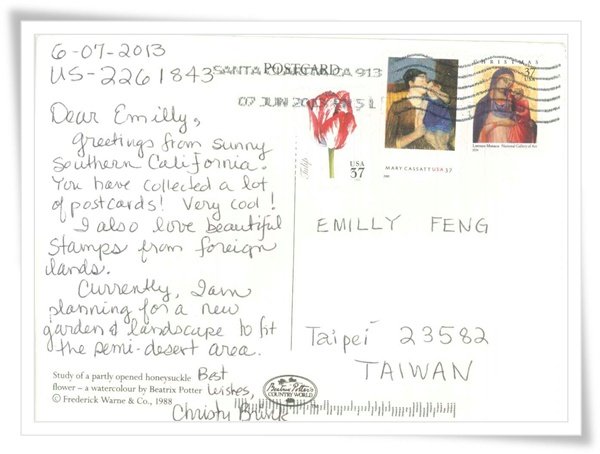 6-07-2013
US-2261843
Dear Emilly,
Greetings from sunny
Southern California.
You have collected a lot
of postcards! Very cool!
I also love beautiful
stamps from foreign
lands.
Currently, I am
planning for a new
garden & landscape to fit
the semi-desert area.
Best
Wishes,
Christy
Study of a partly opened honeysuckle
flower – a watercolour by Beatrix Potter
© Frederick Warne & Co., 1988
POSTCARD
SANTA CA 913
07 JUN
Tulip
USA
37
MARY CASSATT USA 37
CHRISTMAS
37
USA
National Gallery of Art
EMILLY FENG
Taipei 23582
TAIWAN
Beatrix Potter's
COUNTRY WORLD